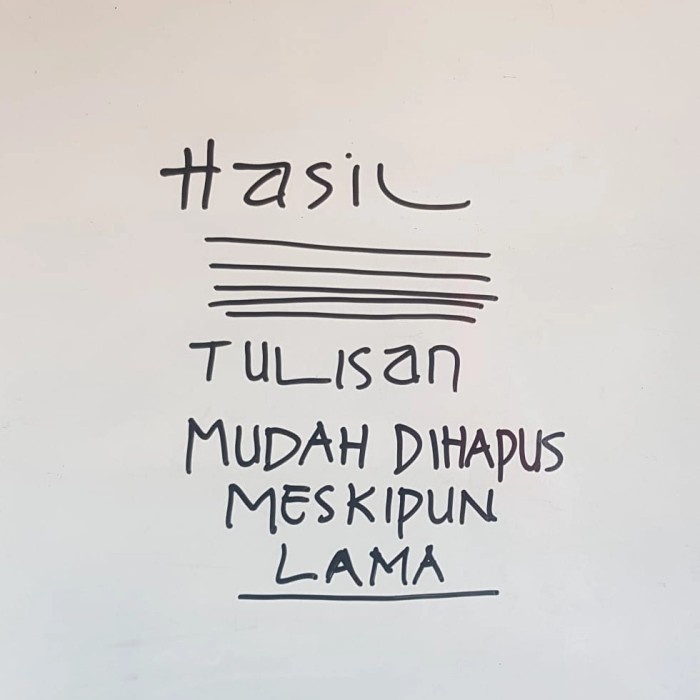 Hasil
TULISan
MUDAH DIHAPUS
MESKIPUN
LAMA